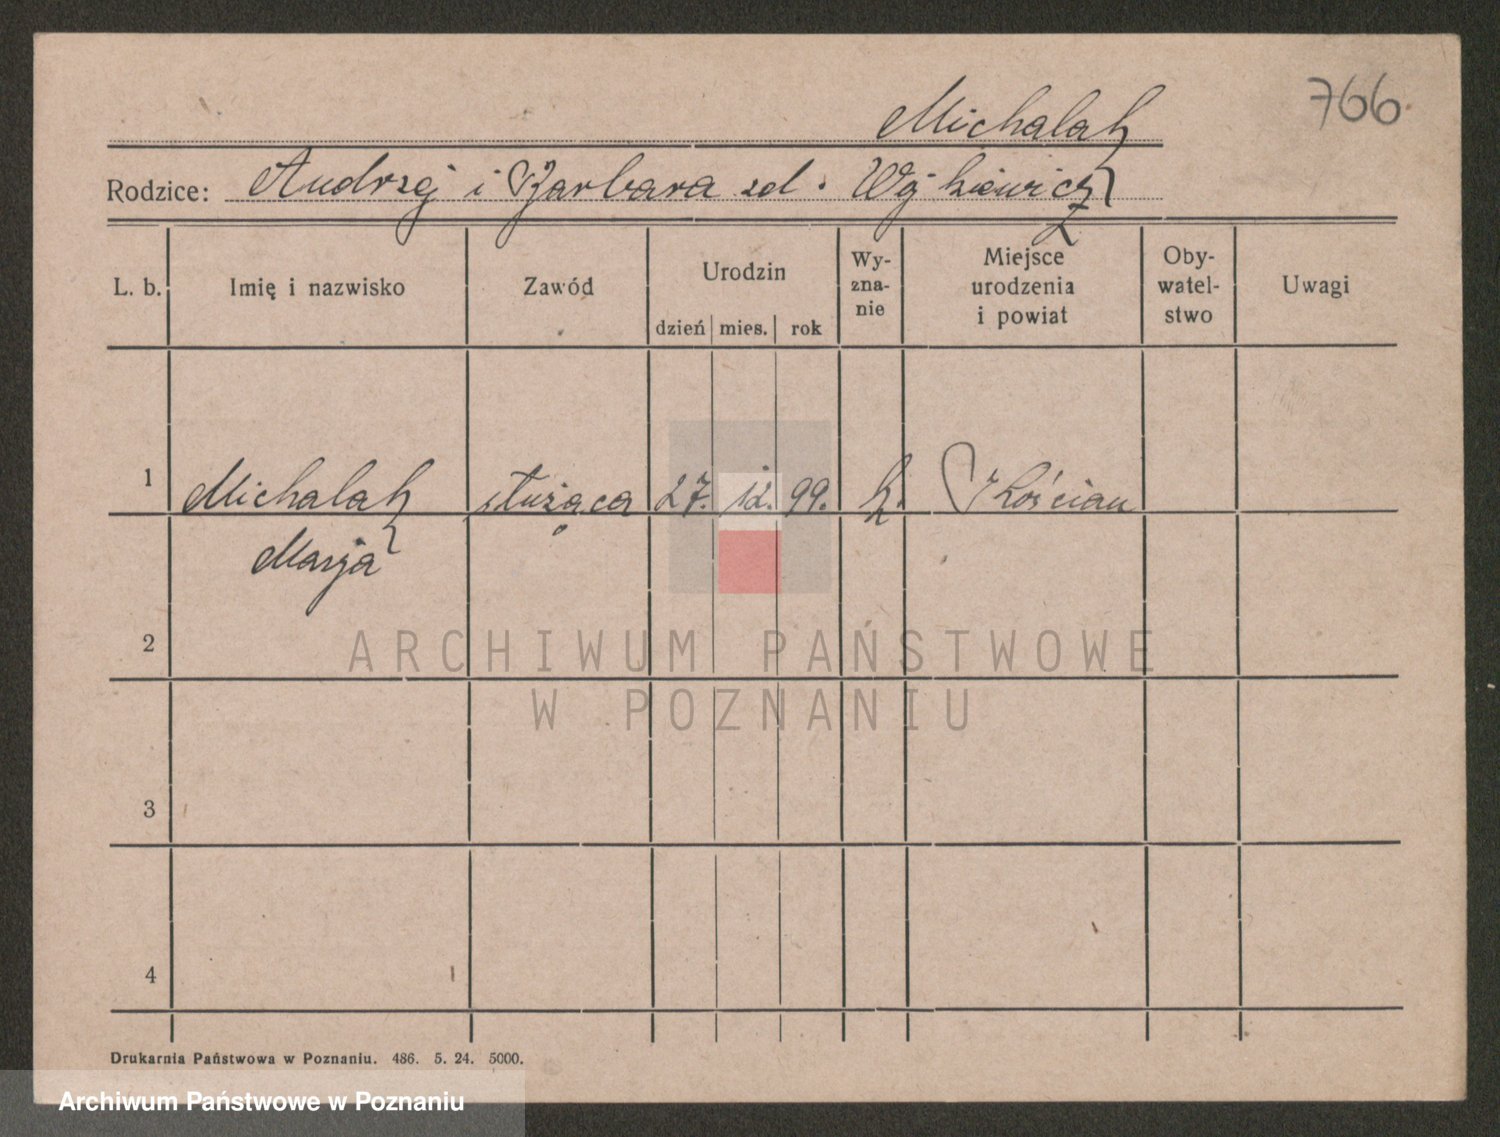 766
Michalak
Rodzice: Andrzej i Barbara zd. Wójkiewicz
L. b.
Imię i nazwisko
Zawód
Urodzin
dzień mies. rok
Wy-
zna-
nie
Miejsce
urodzenia
i powiat
Oby-
watel-
stwo
Uwagi
1 Michalak służąca 27. 12. 99. k. Kościan
Marja
2
3
4
ARCHIWUM PAŃSTWOWE
W POZNANIU
Drukarnia Państwowa w Poznaniu. 486. 5. 24. 5000.
Archiwum Państwowe w Poznaniu